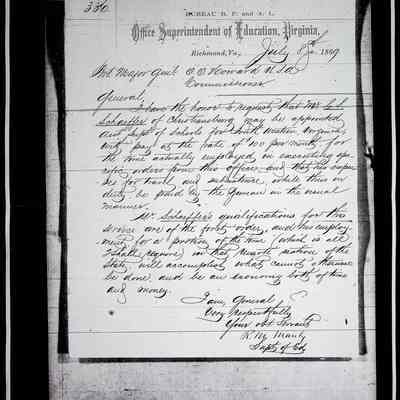 330
BUREAU R. F. and A. L.
Office Superintendent of Education, Virginia,
Richmond, Va., July 1869
Major Genl. O. O. Howard U.S.A.
Commissioner
General,
I have the honor to request that Mr. C. S.
Schaeffer of Christiansburg may be appointed
Asst Supt of Schools for South Western Virginia,
with pay at the rate of 100 per month for
the time actually employed in executing spe-
cific orders from this office, and that his expen-
ses for travel and subsistence, while thus on
duty be paid by the Bureau in the usual
manner.
Mr. Schaeffer's qualifications for this
service are of the first order, and his employ-
ment for a portion of the time (which is all
I shall require) in that remote section of the
State, will accomplish what cannot otherwise
be done, and be an economy both of time
and money.
I am, General
Very Respectfully
Your obt Servant
R. M. Manly
Supt. of Ed